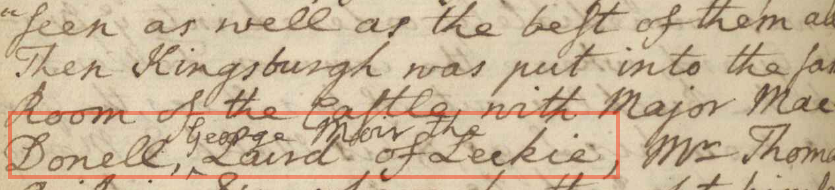 "seen as well as the best of them al
Then Kingsburgh was put into the sa
Room of the Castle, with Major Mac
George Moir the
Donell, ^ Laird of Leckie, Mr Thoma